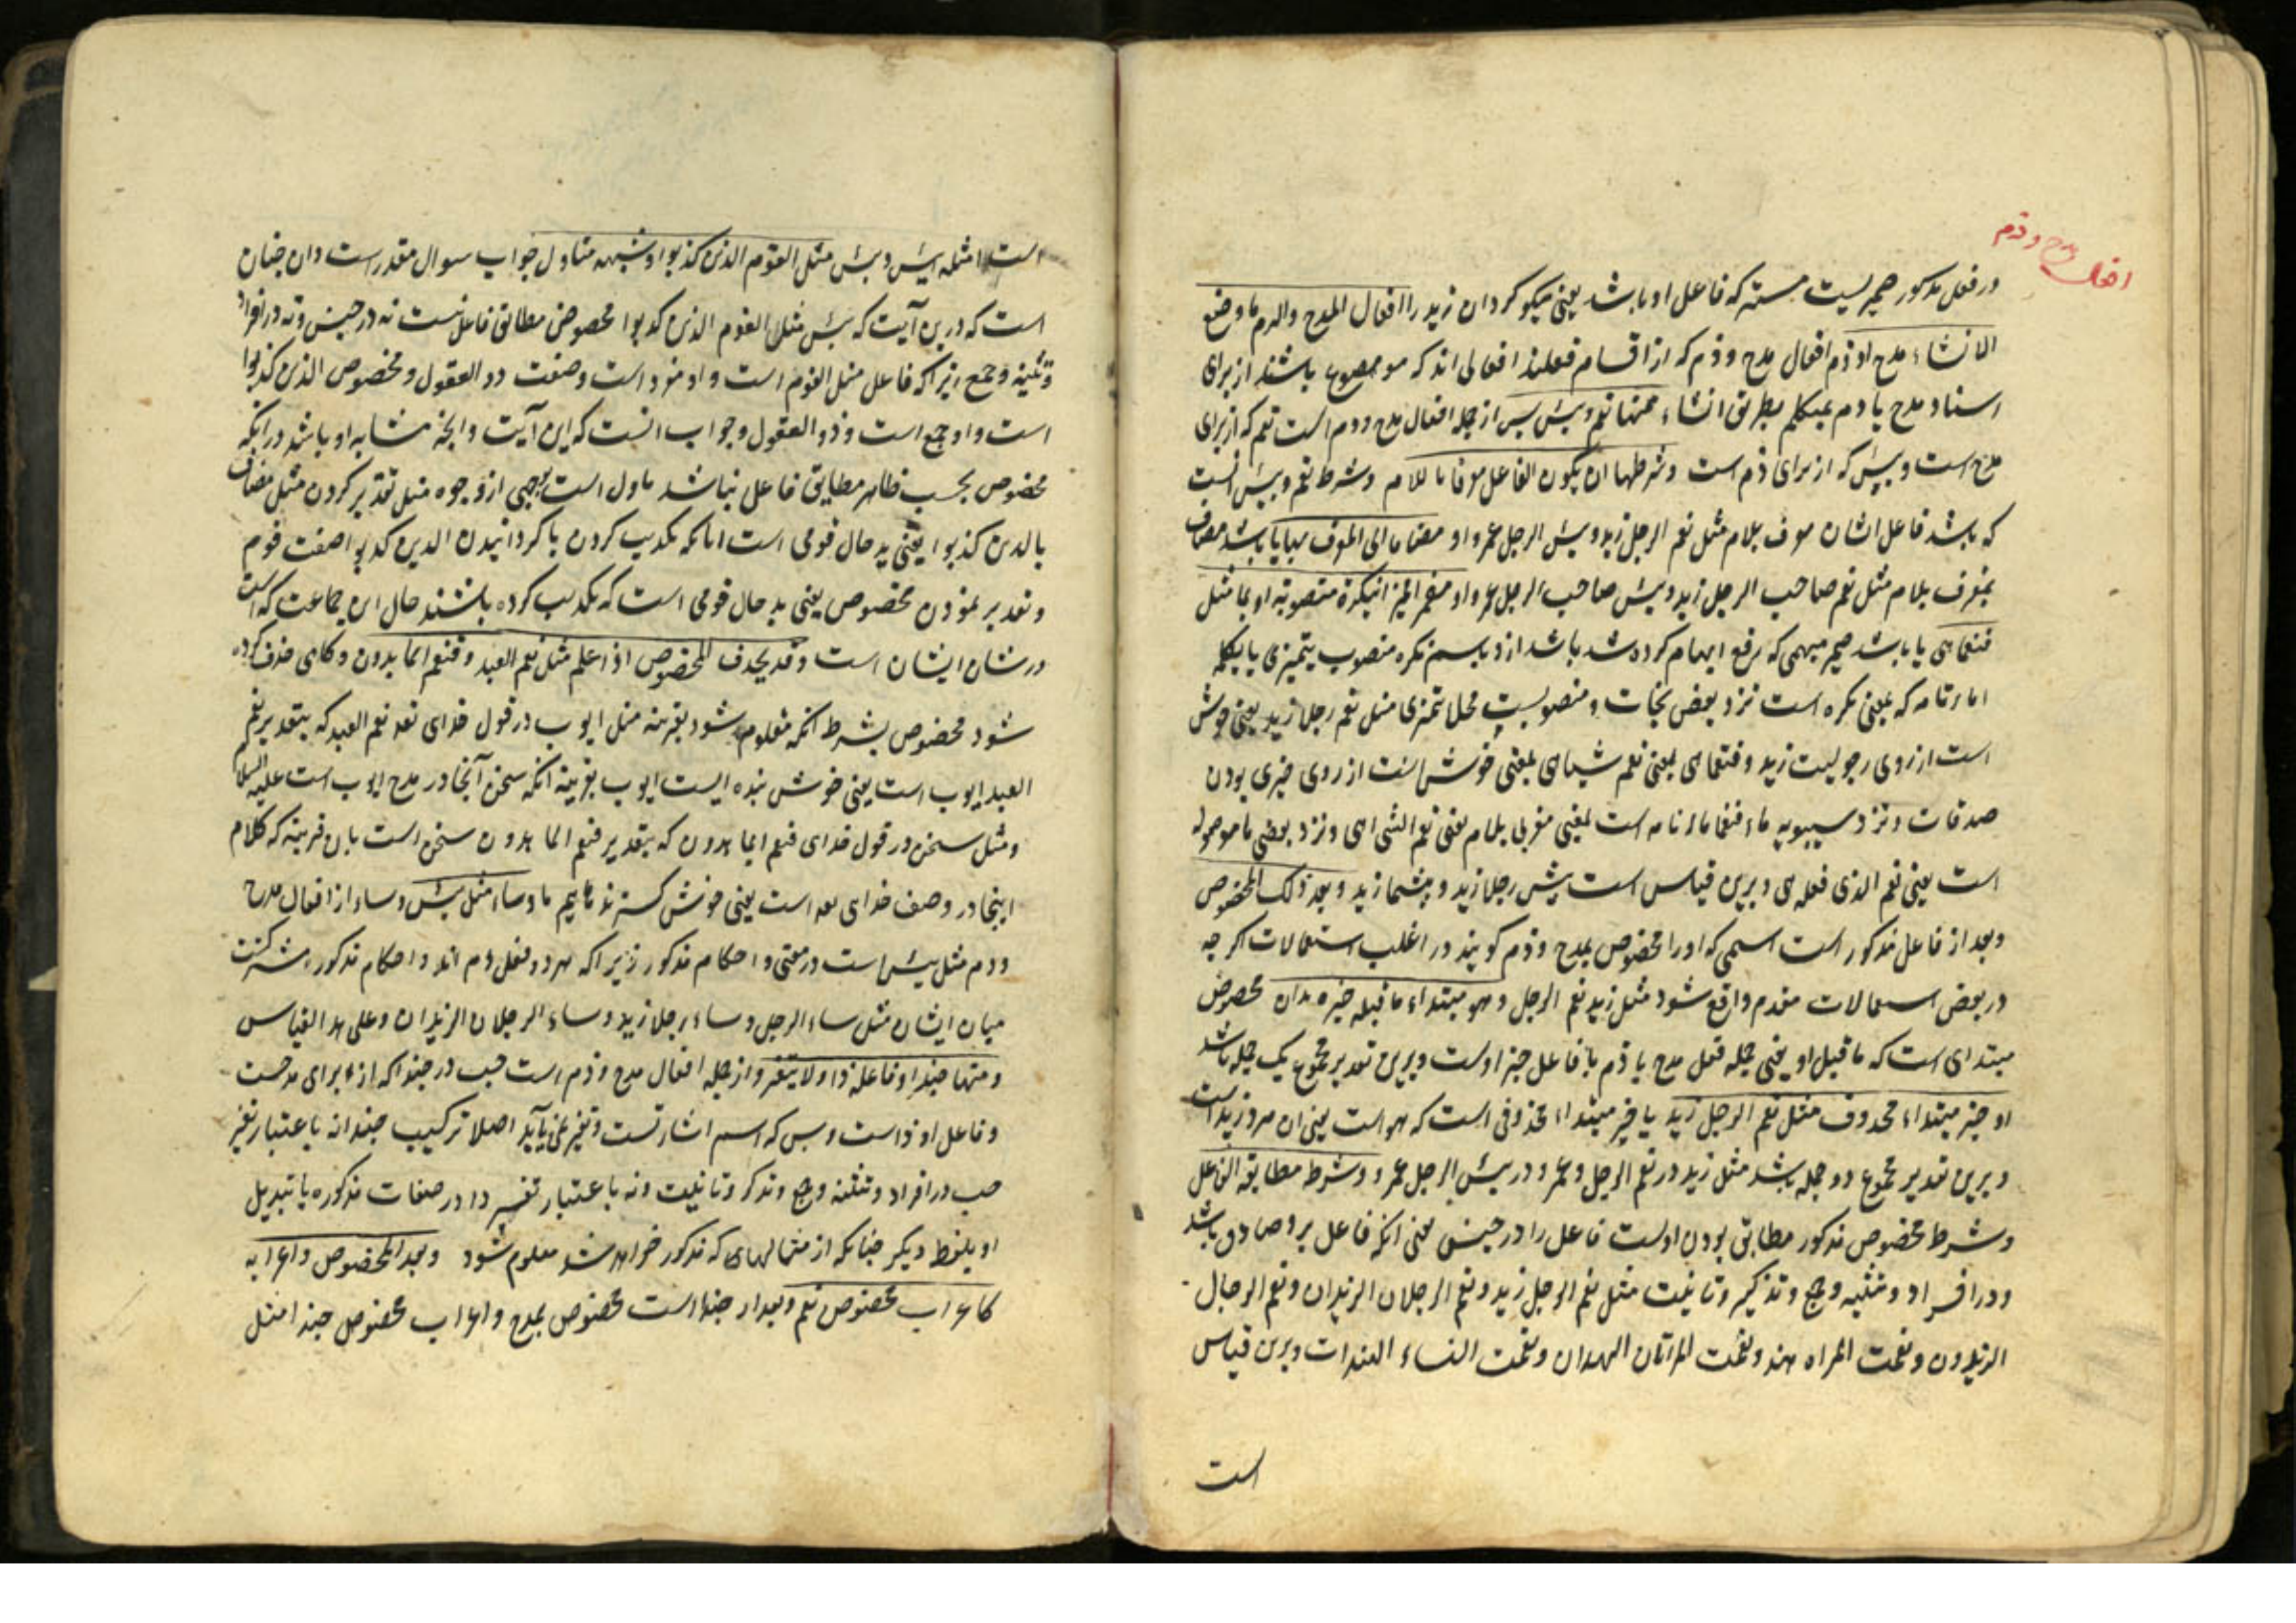 افعال مدح و ذم
در فعل مذکور ضمیریست مستتر که فاعل او باشد یعنی نیکو کردان زید را افعال المدح والذم ما وضع
الانشاء مدح او ذم افعال مدح و ذم که از اقسام فعلند افعالی اند که موضوع باشند از برای
اسناد مدح یا ذم بمتکلم بطریق انشاء فمنها نعم وبئس پس از جمله افعال مدح و ذم است نعم که از برای
مدح است و بئس که از برای ذم است و شرطهما ان یکون الفاعل معرفا باللام و شرط نعم و بئس انست
که باشد فاعل ایشان معرف بلام مثل نعم الرجل زید وبئس الرجل عمرو او مضافا الی المعرف بها یا باشد مضاف
بمعرف بلام مثل نعم صاحب الرجل زید وبئس صاحب الرجل عمرو او مضمرا ممیزا بنکرة منصوبة او بما مثل
فنعما هی یا باشد ضمیر مبهمی که رفع ابهام کرده شد باشد ازو باسم نکره منصوب بتمیزی یا بکلمه
اما ء تامه که بمعنی نکره است نزد بعض نحات و منصوبست محلا بتمیزی مثل نعم رجلا زید یعنی خوش
است از روی رجولیت زید و فنعما هی بمعنی نعم شیئا هی بمعنی خوش است از روی چیزی بودن
صدقات و نزد سیبویه ماء فنعما ماء تامه است بمعنی معرف بلام یعنی نعم الشی هی و نزد بعضی ما موصوله
است یعنی نعم الذی فعله هی و برین قیاس است بئس رجلا زید و بئسما زید و بعد ذلک المخصوص
و بعد از فاعل مذکور است اسمی که او را مخصوص بمدح و ذم کویند در اغلب استعمالات اکرچه
در بعض استعمالات مقدم واقع شود مثل زید نعم الرجل و هو مبتداء ما قبله خبره و ان مخصوص
مبتدای است که ما قبل او یعنی جمله فعل مدح یا ذم با فاعل خبر اوست و برین تقدیر مجموع یک جمله باشد
او خبر مبتداء محذوف مثل نعم الرجل زید یا خبر مبتداء محذوفی است که هو است یعنی ان مرد زید است
و برین تقدیر مجموع دو جمله باشد مثل زید در نعم الرجل و عمرو در بئس الرجل عمرو و شرط مطابقة الفاعل
و شرط مخصوص مذکور مطابق بودن اوست فاعل را در جنس یعنی انکه فاعل برو صادق باشد
و در افراد و تثنیه و جمع و تذکیر و تانیث مثل نعم الرجل زید و نعم الرجلان الزیدان و نعم الرجال
الزیدون و نعمت المراه هند و نعمت المرأتان الهندان و نعمت النساء الهندات و برین قیاس
است
است امثله بئس و بئس مثل القوم الذین کذبوا و شبهه متاول جواب سوال مقدر است و ان چنان
است که درین آیت که بئس مثل القوم الذین کذبوا مخصوص مطابق فاعل نیست نه در جنس و نه در افراد
و تثنیه و جمع زیرا که فاعل مثل القوم است و او مفرد است و صفت ذو العقول و مخصوص الذین کذبوا
است و او جمع است و ذو العقول و جواب انست که این آیت و انچه مشابه او باشد در انکه
مخصوص بحسب ظاهر مطابق فاعل نباشد ماول است بوجهی از وجوه مثل تقدیر کردن مثل مضاف
بالذین کذبوا یعنی بد حال قومی است اما که تکذیب کردن یا کردانیدن الذین کذبوا صفت قوم
و تقدیر نمودن مخصوص یعنی بد حال قومی است که تکذیب کرده باشند حال این جماعت که آیت
در شان ایشان است و قد یحذف المخصوص اذا علم مثل نعم العبد و فنعم الماهدون و کاهی حذف کرده
شود مخصوص بشرط انکه معلوم شود بقرینه مثل ایوب در قول خدای تعه نعم العبد که بتقدیر نعم
العبد ایوب است یعنی خوش بنده ایست ایوب بقرینه انکه سخن آنجا در مدح ایوب است علیه السلام
و مثل نحن در قول خدای فنعم الماهدون که بتقدیر فنعم الماهدون نحن است بان قرینه که کلام
اینجا در وصف خدای تعه است یعنی خوش کسترنده ماییم ما و ساء مثل بئس و ساء از افعال مدح
و ذم مثل بئس است در معنی و احکام مذکور زیرا که هر دو فعل ذم اند و احکام مذکوره مشترکست
میان ایشان مثل ساء الرجل و ساء رجلا زید و ساء الرجلان الزیدان و علی هذا القیاس
و منها حبذا و فاعله ذا ولا یتغیر و از جمله افعال مدح و ذم است حب در حبذا که از برای مدحست
و فاعل او ذا است و بس که اسم اشارتست و تغیر نمی یابد اصلا ترکیب حبذا نه باعتبار تغیر
حب در افراد و تثنیه و جمع و تذکیر و تانیث و نه باعتبار تغییر ذا در صفات مذکوره یا تبدیل
او بلفظ دیکر چنانکه از مثالهای که مذکور خواهد شد معلوم شود و بعده المخصوص و اعرابه
کاعراب مخصوص نعم و بعد از حبذا است مخصوص بمدح و اعراب مخصوص حبذا مثل